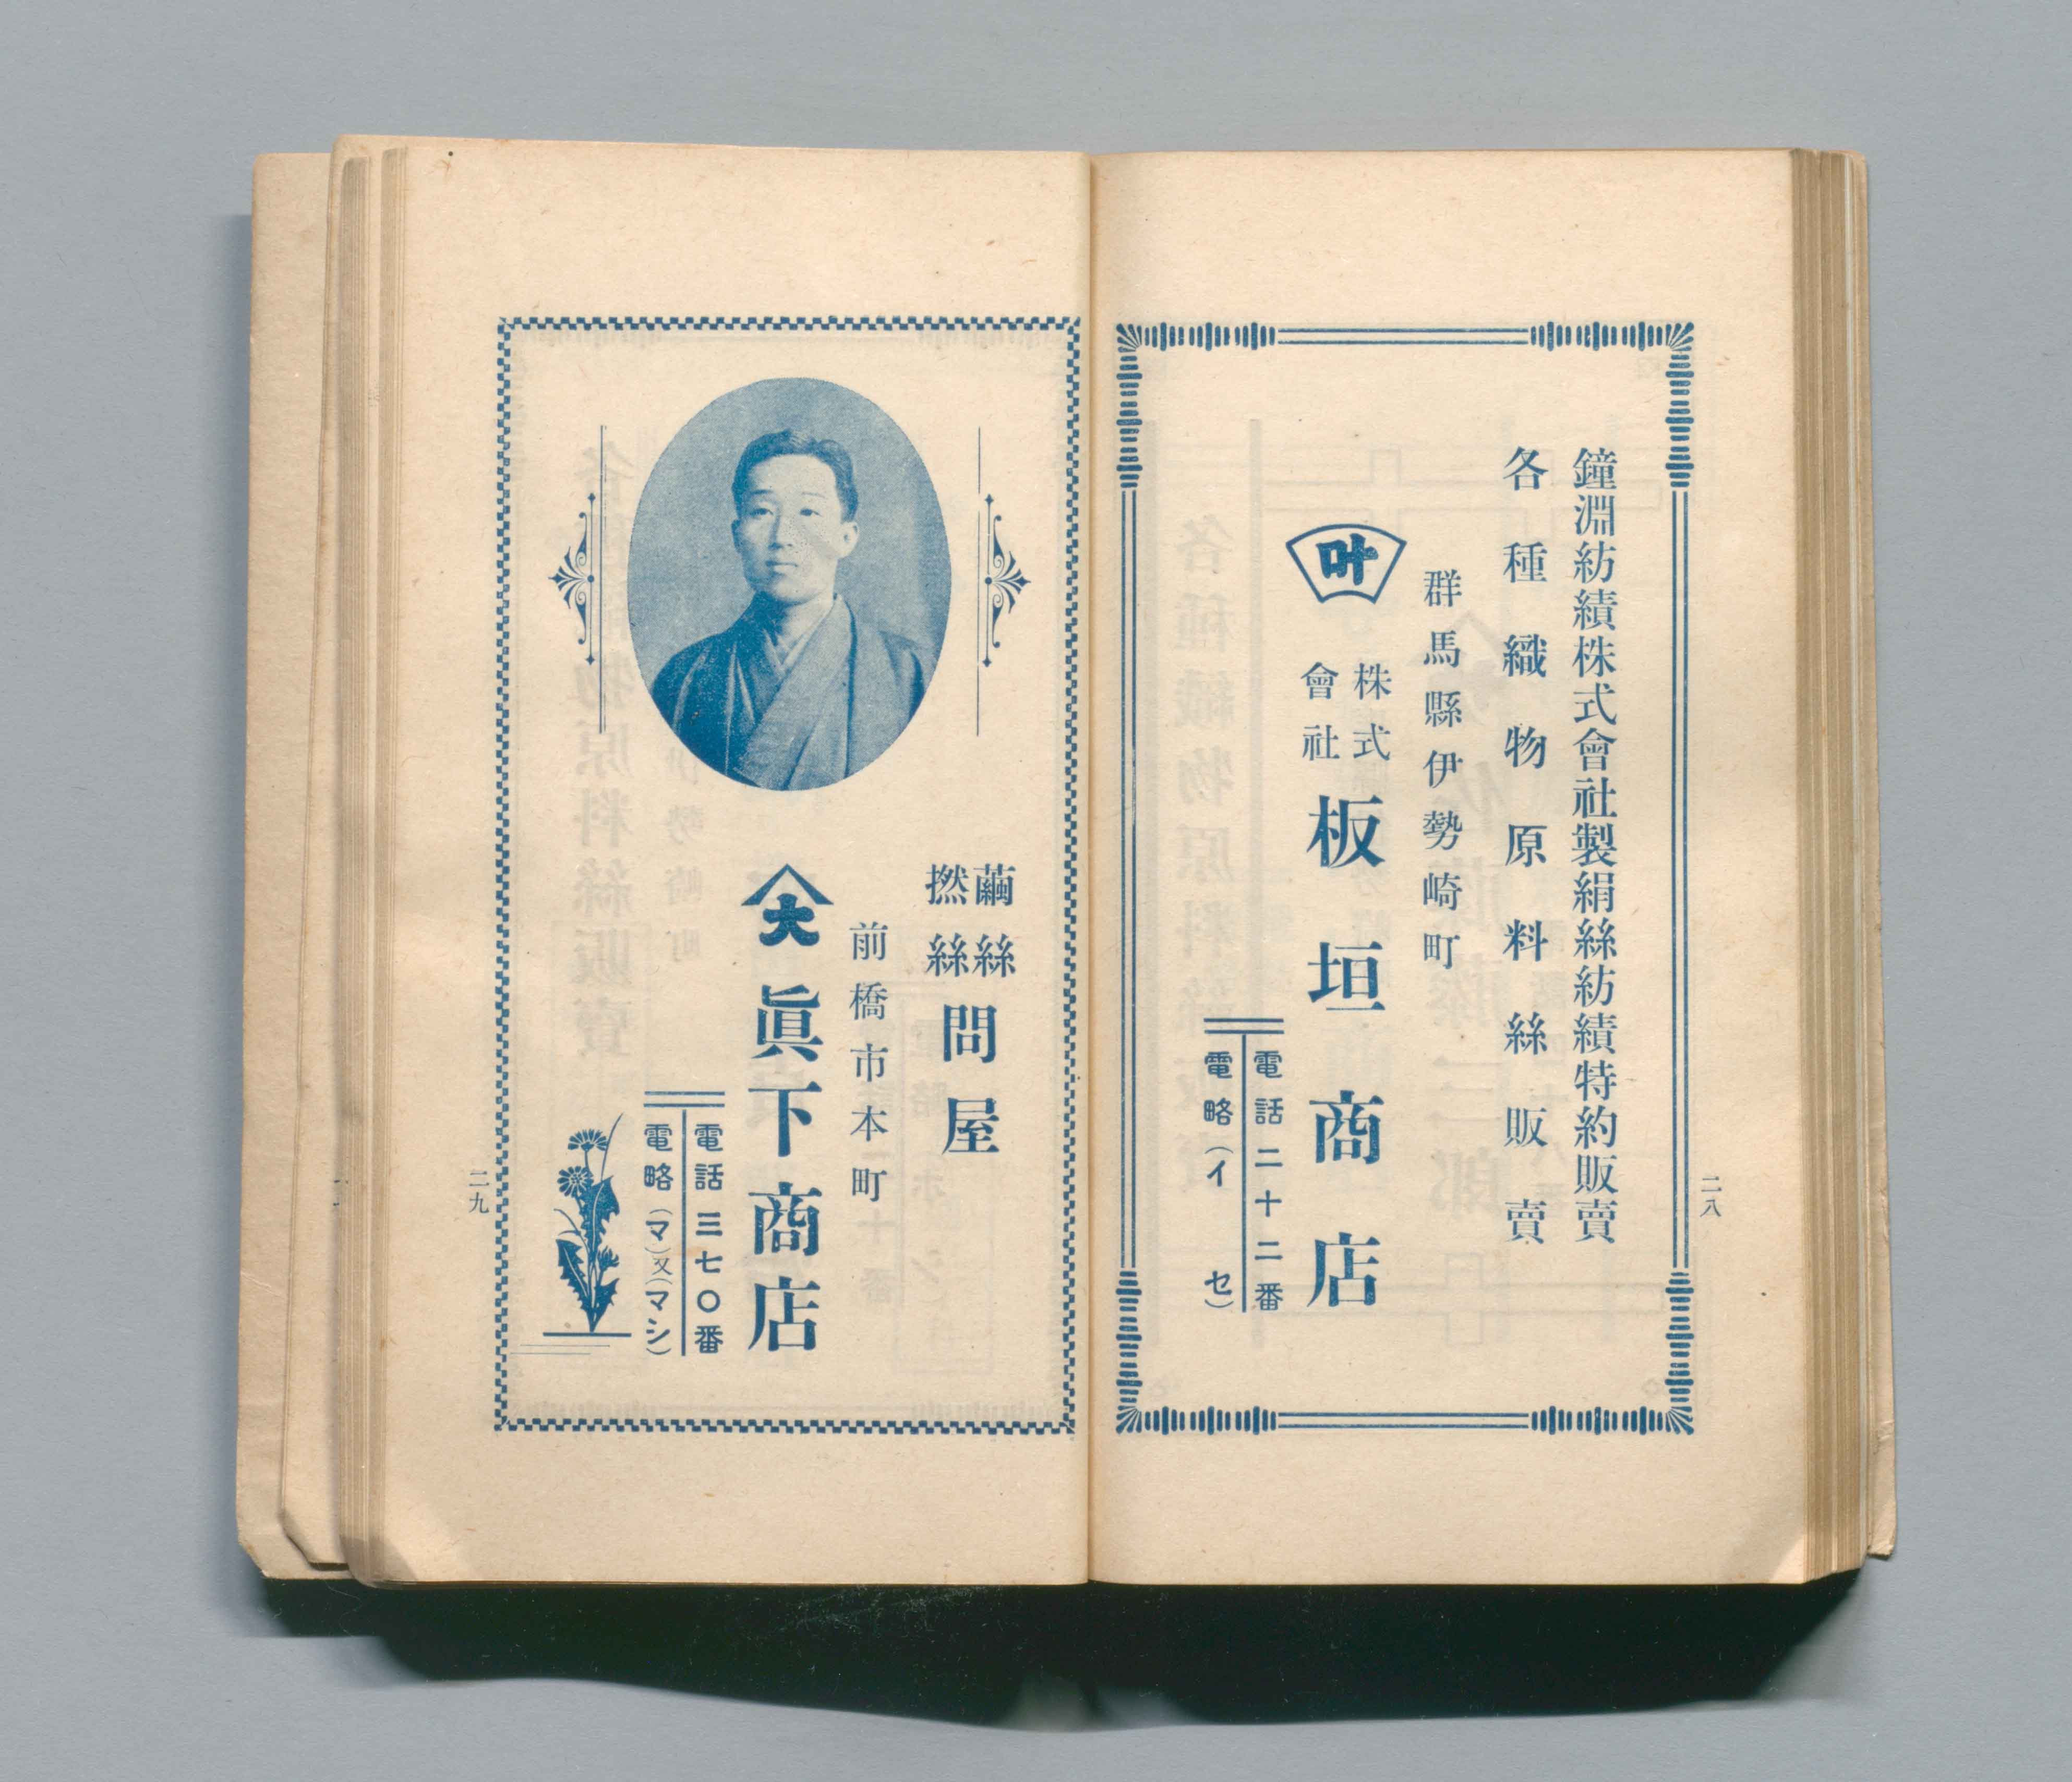 鐘淵紡績株式會社製絹絲紡績特約販賣
各種織物原料絲販賣
群馬縣伊勢崎町
叶
株式
會社
板垣商店
電話二十二番
電略(イセ)
二八
繭絲
撚絲
問屋
前橋市本町
大
眞下商店
電話三七〇番
電略(マ)又(マシ)
二九